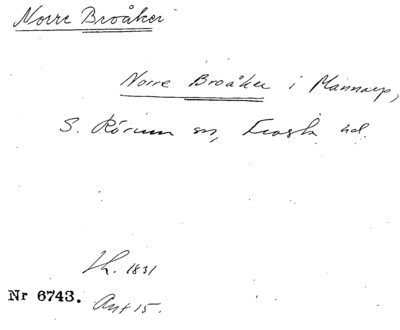 Norre Broåker
Norre Broåker i Mannarp,
S. Rörum sn, Frosta hd.
Lh. 1831
Nr 6743.
Akt 15.